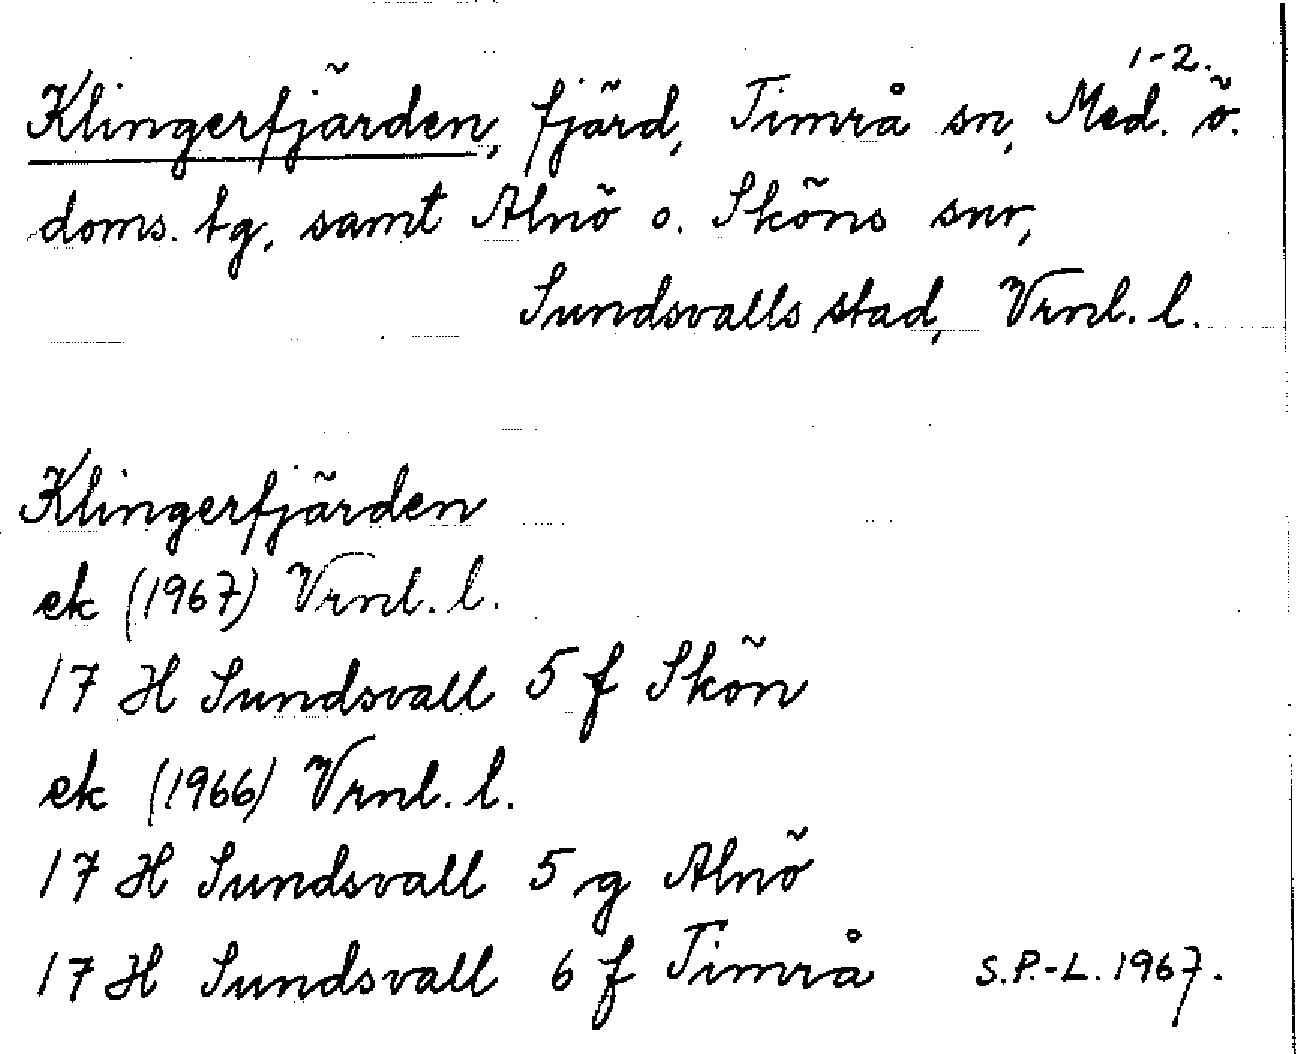 1-2.
Klingerfjärden, fjärd, Timrå sn, Med. ö.
doms. tg, samt Alnö o. Sköns snr,
Sundsvalls stad, Vrnl. l.
Klingerfjärden
ek (1967) Vrnl. l.
17 H Sundsvall 5 f Skön
ek (1966) Vrnl. l.
17 H Sundsvall 5 g Alnö
17 H Sundsvall 6 f Timrå S.P.-L. 1967.